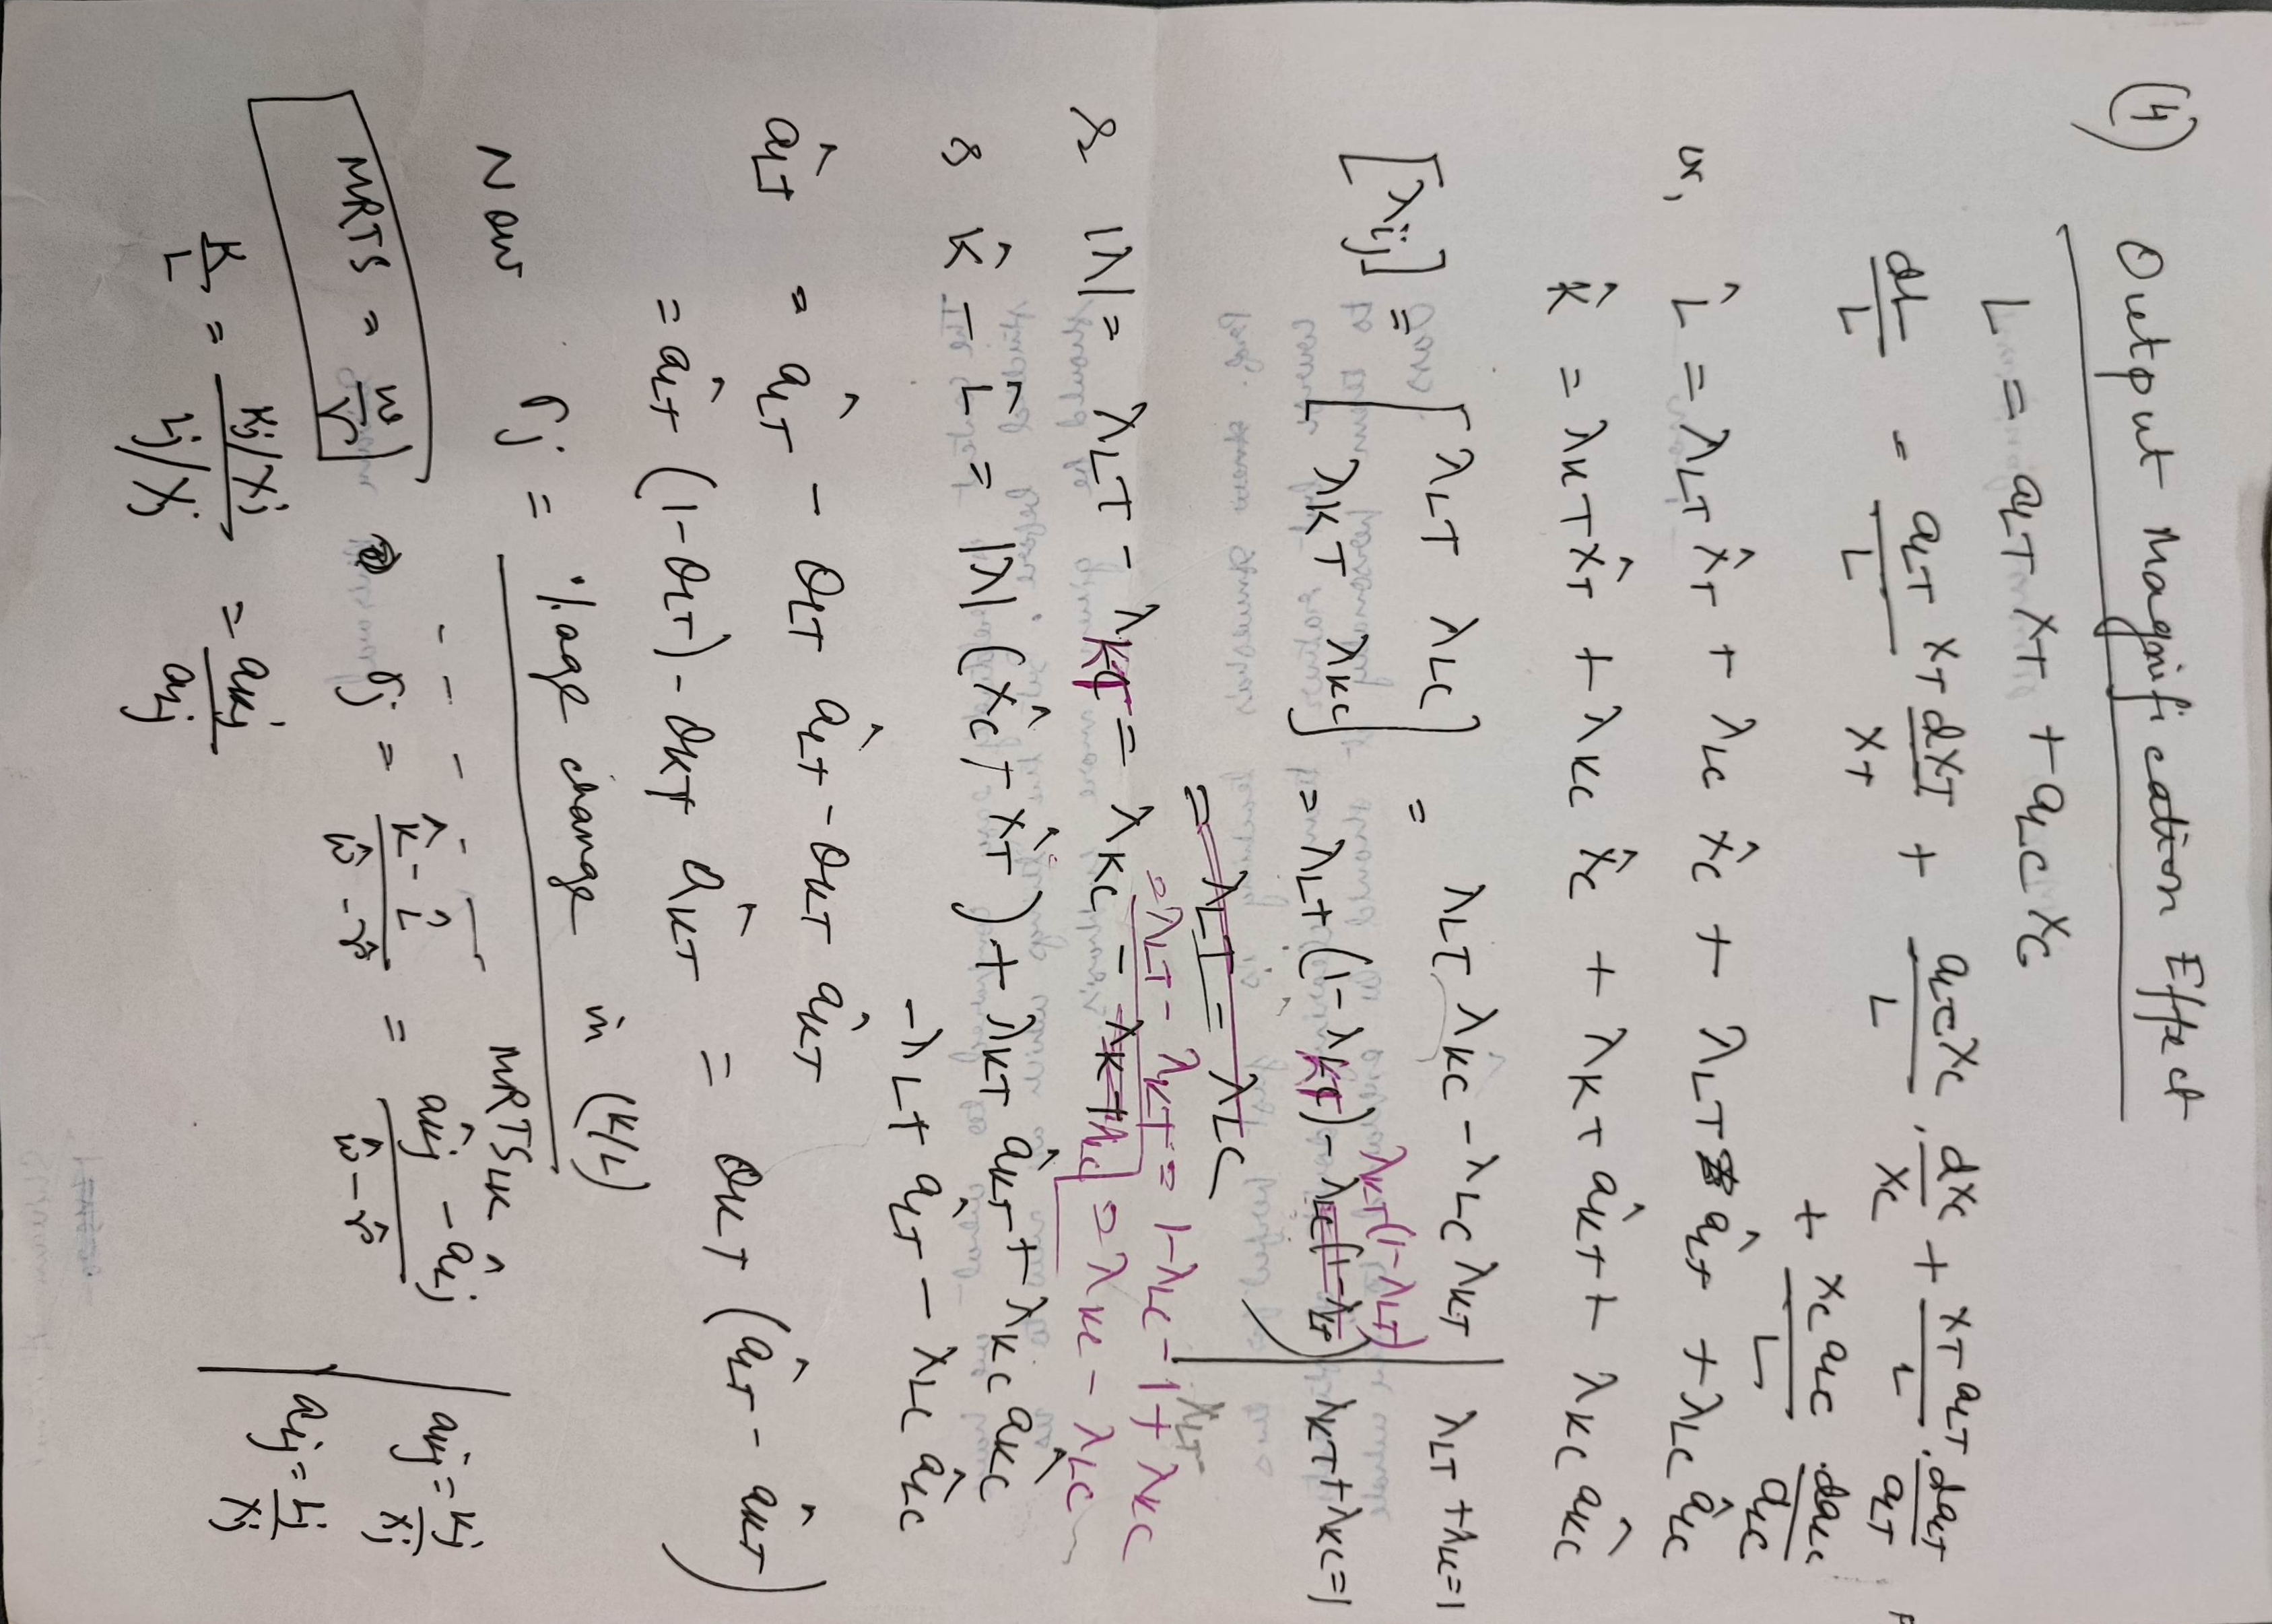 (4) Output Magnification Effect
L = aLT XT + aLC XC
dL/L = aLT XT/L dXT/XT + aLC XC/L · dXC/XC + XT aLT/L · daLT/aLT
+ XC aLC/L · daLC/aLC
or, L̂ = λLT X̂T + λLC X̂C + λLT âLT + λLC âLC
K̂ = λKT X̂T + λKC X̂C + λKT âKT + λKC âKC
[λij] = [ λLT λLC
λKT λKC ] = λLT λKC - λLC λKT | λLT + λLC = 1
= λLT (1 - λKT) - λKT(1-λLT) | λKT + λKC = 1
= λLT = λLC
= λLT - λKT = 1 - λLC - 1 + λKC
& |λ| = λLT - λKT = λKC - = λKC - λLC
& K̂ - L̂ = |λ| (X̂C + X̂T) + λKT âKT + λKC âKC
- λLT âLT - λLC âLC
âLT = âLT - θLT âLT - θKT âKT
= âLT (1 - θLT) - θKT âKT = θKT (âLT - âKT)
Now σj = %age change in (K/L)
MRTSLK
MRTS = w/r σj = K̂ - L̂/ŵ - r̂ = âKj - âLj/ŵ - r̂
K/L = Kj/Xj/Lj/Xj = aKj/aLj
aKj = Kj/Xj
aLj = Lj/Xj